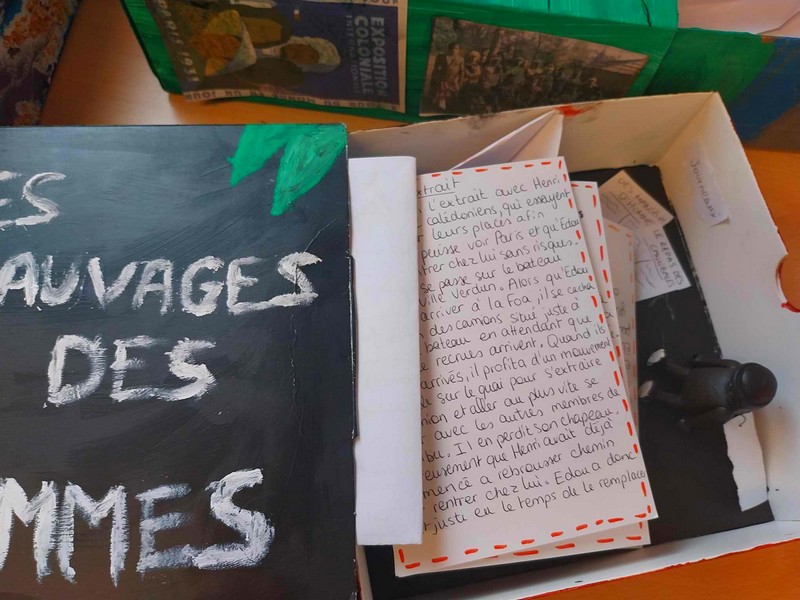 EXPOSITION
COLONIALE
INTERNATIONALE
PARIS 1931
ES
AUVAGES
DES
MMES
trait
l'extrait avec Henri
calédoniens, qui essayent
leurs places afin
puisse voir Paris et qu'Edou
trer chez lui sans risques.
se passe sur le bateau
ville Verdun. Alors qu'Edou
arriver à la Foa, il se cacha
des camions situé juste à
bateau en attendant que
recrues arrivent. Quand ils
arrivés, il profita d'un mouvement
sur le quai pour s'extraire
ion et aller au plus vite se
avec les autres membres de
bu. Il en perdit son chapeau,
eusement que Henri avait déjà
mencé a rebrousser chemin
rentrer chez lui. Edou a donc
juste eu le temps de le remplace
JOURNEAUX